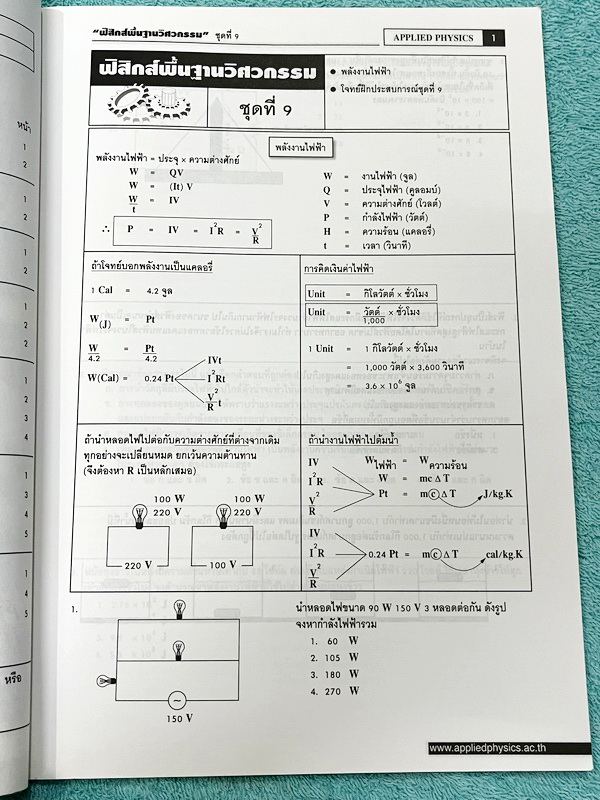 "ฟิสิกส์พื้นฐานวิศวกรรม" ชุดที่ 9
APPLIED PHYSICS 1
ฟิสิกส์พื้นฐานวิศวกรรม
ชุดที่ 9
● พลังงานไฟฟ้า
● โจทย์ฝึกประสบการณ์ชุดที่ 9
พลังงานไฟฟ้า
พลังงานไฟฟ้า = ประจุ × ความต่างศักย์
W = QV
W = (It) V
W/t = IV
∴ P = IV = I²R = V²/R
W = งานไฟฟ้า (จูล)
Q = ประจุไฟฟ้า (คูลอมบ์)
V = ความต่างศักย์ (โวลต์)
P = กำลังไฟฟ้า (วัตต์)
H = ความร้อน (แคลอรี่)
t = เวลา (วินาที)
ถ้าโจทย์บอกพลังงานเป็นแคลอรี่
1 Cal = 4.2 จูล
W(J) = Pt
W/4.2 = Pt/4.2
W(Cal) = 0.24 Pt
IVt
I²Rt
V²/R t
การคิดเงินค่าไฟฟ้า
Unit = กิโลวัตต์ × ชั่วโมง
Unit = วัตต์/1,000 × ชั่วโมง
1 Unit = 1 กิโลวัตต์ × ชั่วโมง
= 1,000 วัตต์ × 3,600 วินาที
= 3.6 × 10⁶ จูล
ถ้านำหลอดไฟไปต่อกับความต่างศักย์ที่ต่างจากเดิม
ทุกอย่างจะเปลี่ยนหมด ยกเว้นความต้านทาน
(จึงต้องหา R เป็นหลักเสมอ)
100 W
220 V
220 V
100 W
220 V
100 V
ถ้านำงานไฟฟ้าไปต้มน้ำ
IV
I²R
V²/R
Wไฟฟ้า = Wความร้อน
W = mc Δ T
Pt = mⓒ Δ T J/kg.K
IV
I²R
V²/R
0.24 Pt = mⓒ Δ T cal/kg.K
1.
150 V
นำหลอดไฟขนาด 90 W 150 V 3 หลอดต่อกัน ดังรูป
จงหากำลังไฟฟ้ารวม
1. 60 W
2. 105 W
3. 180 W
4. 270 W
www.appliedphysics.ac.th
หน้า
1
2
1
2
1
2
1
2
2
2
1
2
3
4
1
3
4
5
1
4
5
หรือ